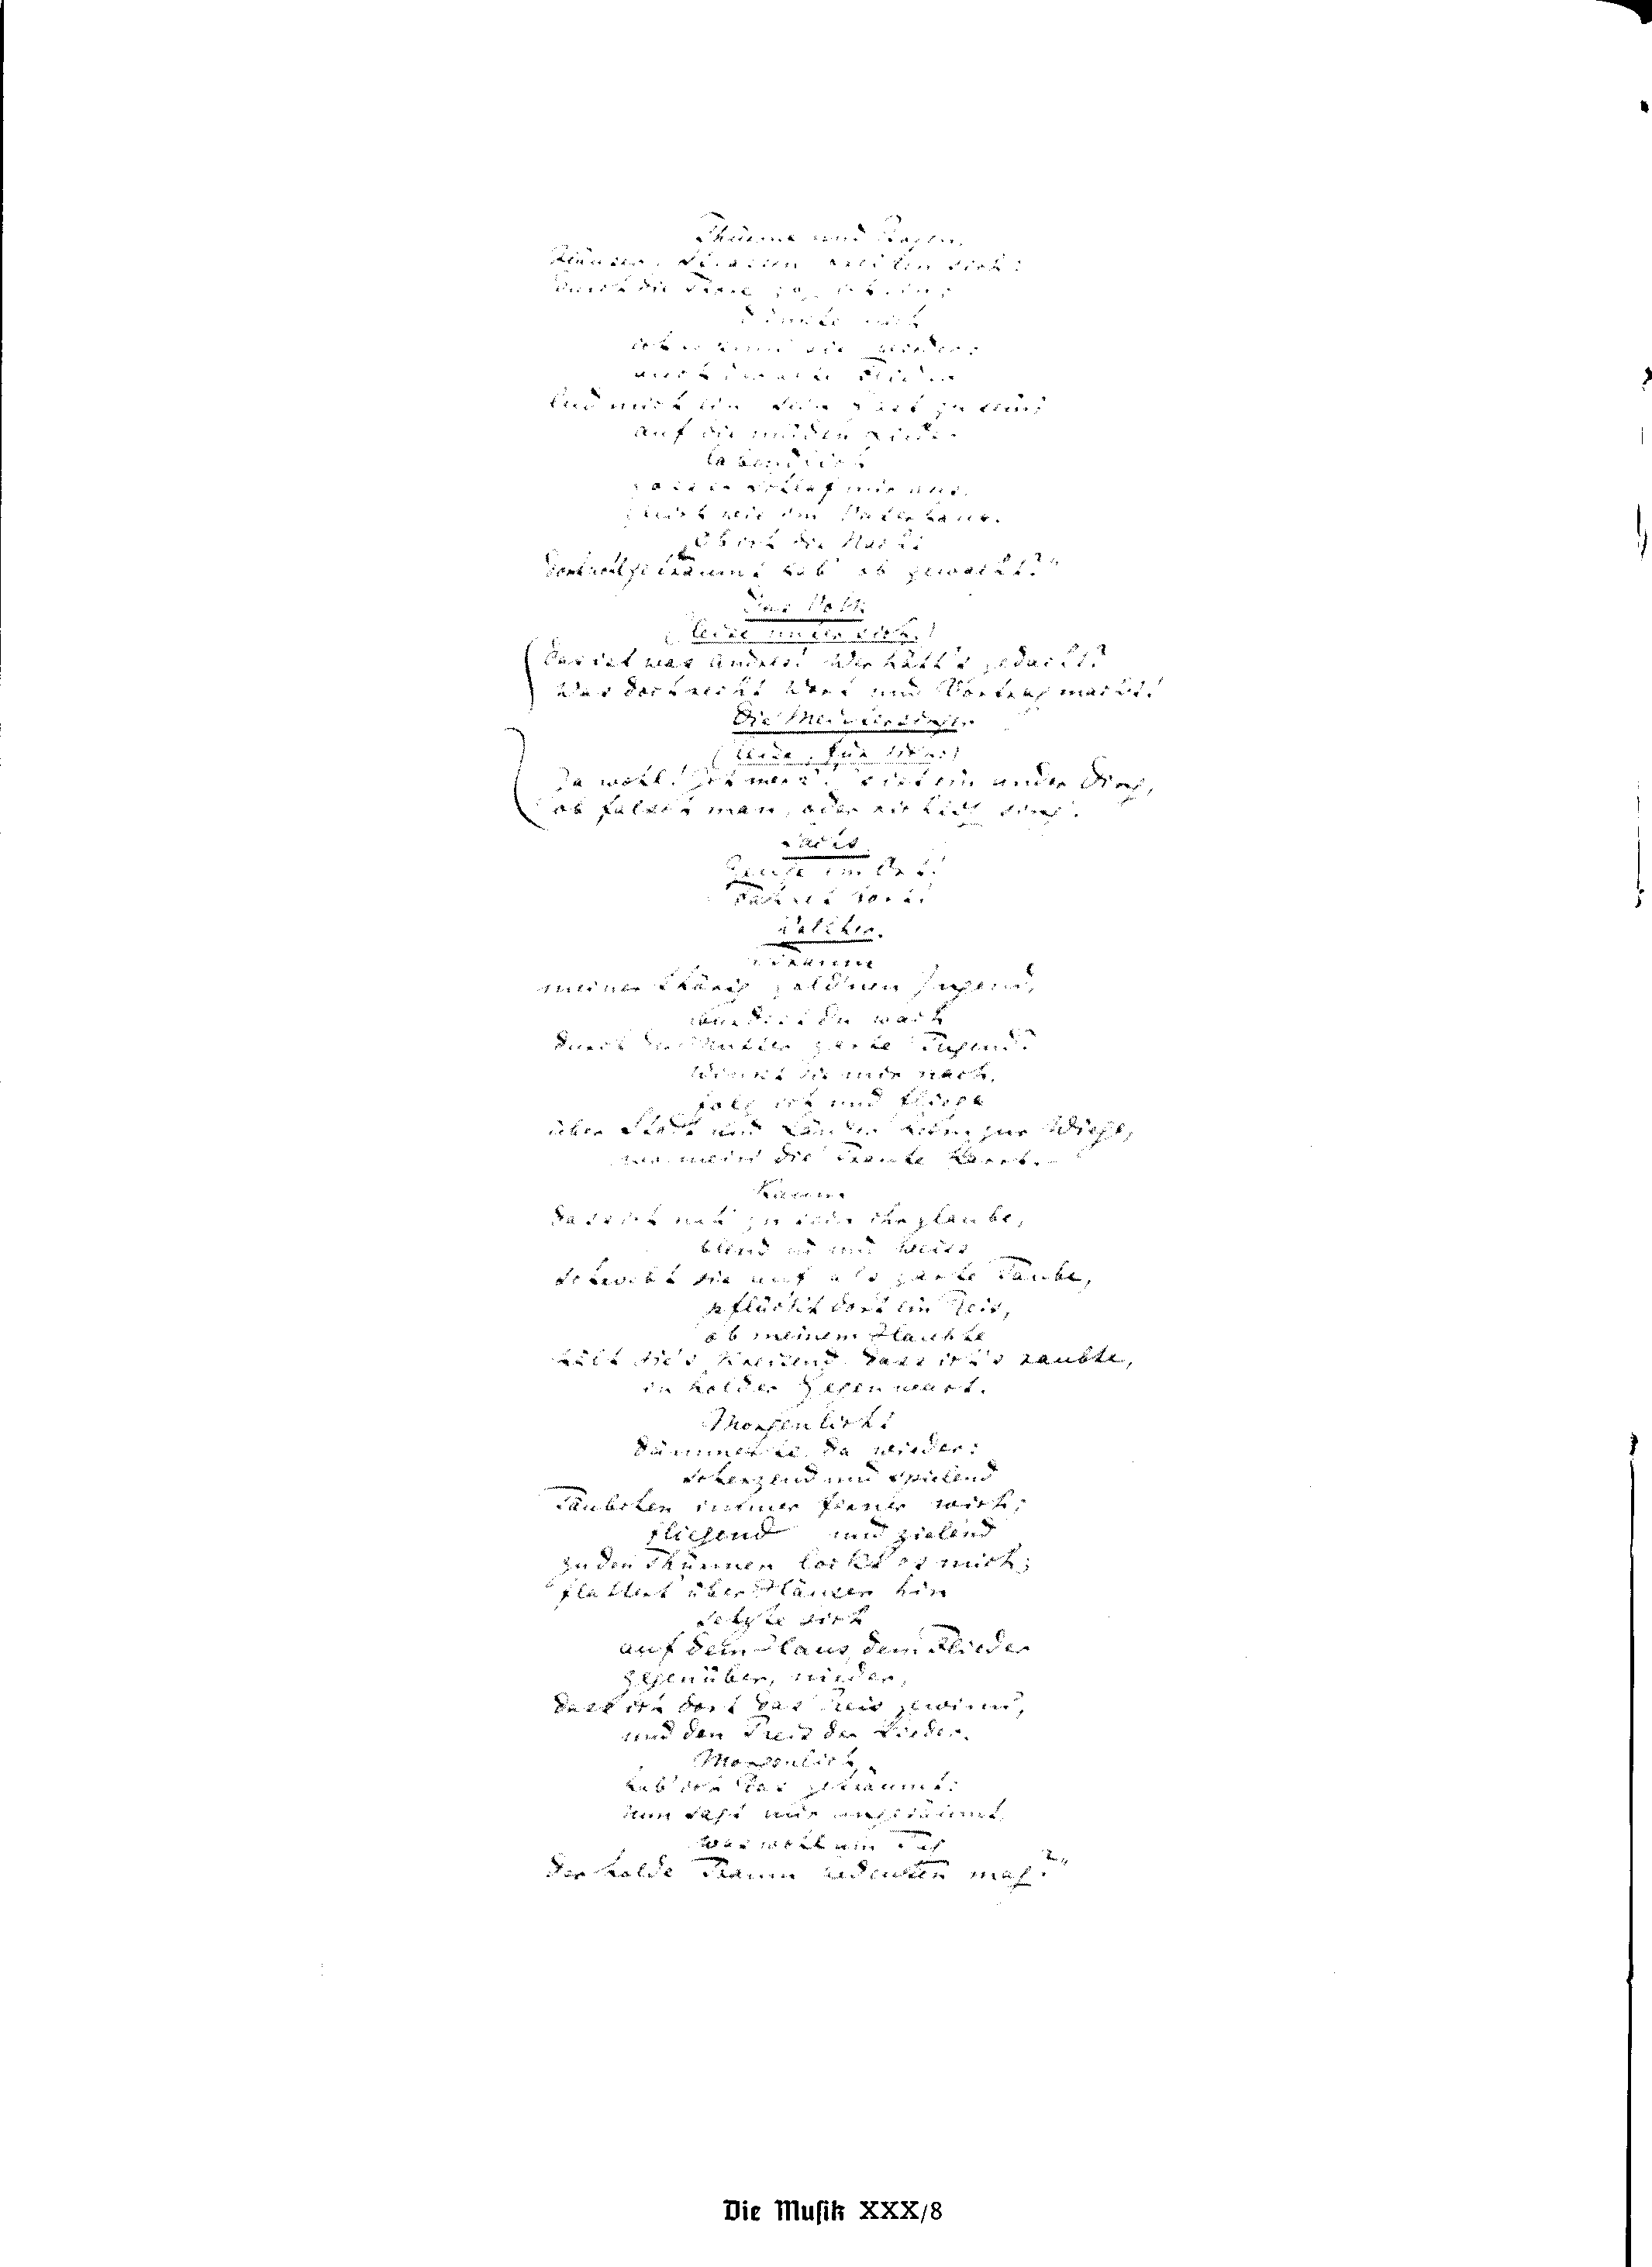 Thürme und Bogen,
Häuser, Strassen breiten sich:
durch die Thore zog ich ein,
dünkte mich
ich erkenn sie wieder;
auch der alte Flieder
lud mich ein sein Gast zu sein;
auf die müden Lider
labend lich
goss er Schlaf mir aus,
gleich wie im Vaterhaus.
Ob ich die Nacht
dort wohl geträumt hab' ob gewacht?"
Das Volk
(leise unter sich.)
Das ist was Andres! Wer hätt's gedacht?
Was doch recht Wort und Vortrag macht!
Die Meistersinger
(leise, für sich.)
Ja wohl! Ich merk'! 's ist ein ander Ding,
ob falsch man, oder richtig sing'.
Sachs.
Zeuge im Ort!
Fahret fort!
Walther.
"Traum
meiner thörig goldnen Jugend,
wurdest du wach
durch der Mutter zarte Tugend?
Winkt sie mir nach,
folg ich und fliege
über Stadt und Länder heim zur Wiege,
wo mein' die Traute harrt.
Kaum
dass ich nah' zu sein ihr glaube,
blendend und weiss
schwebt sie auf als zarte Taube,
pflückt dort ein Reis,
ob meinem Haupte
hält sie's kreisend, dass ich's raubte,
in holder Gegenwart.
Morgenlicht
dämmerte da wieder:
scherzend und spielend
Täubchen immer ferner wich;
fliegend und zielend
zu den Thürmen lockt' es mich;
flattert' über Häuser hin
setzte sich
auf dem Haus, dem Flieder
gegenüber, nieder,
dass ich dort das Reis gewinn',
und den Preis der Lieder.
Morgenlich
hab' ich das geträumt:
nun sagt mir ungesäumt,
was wohl am Tag
der holde Traum bedeuten mag?"
Die Musik XXX/8